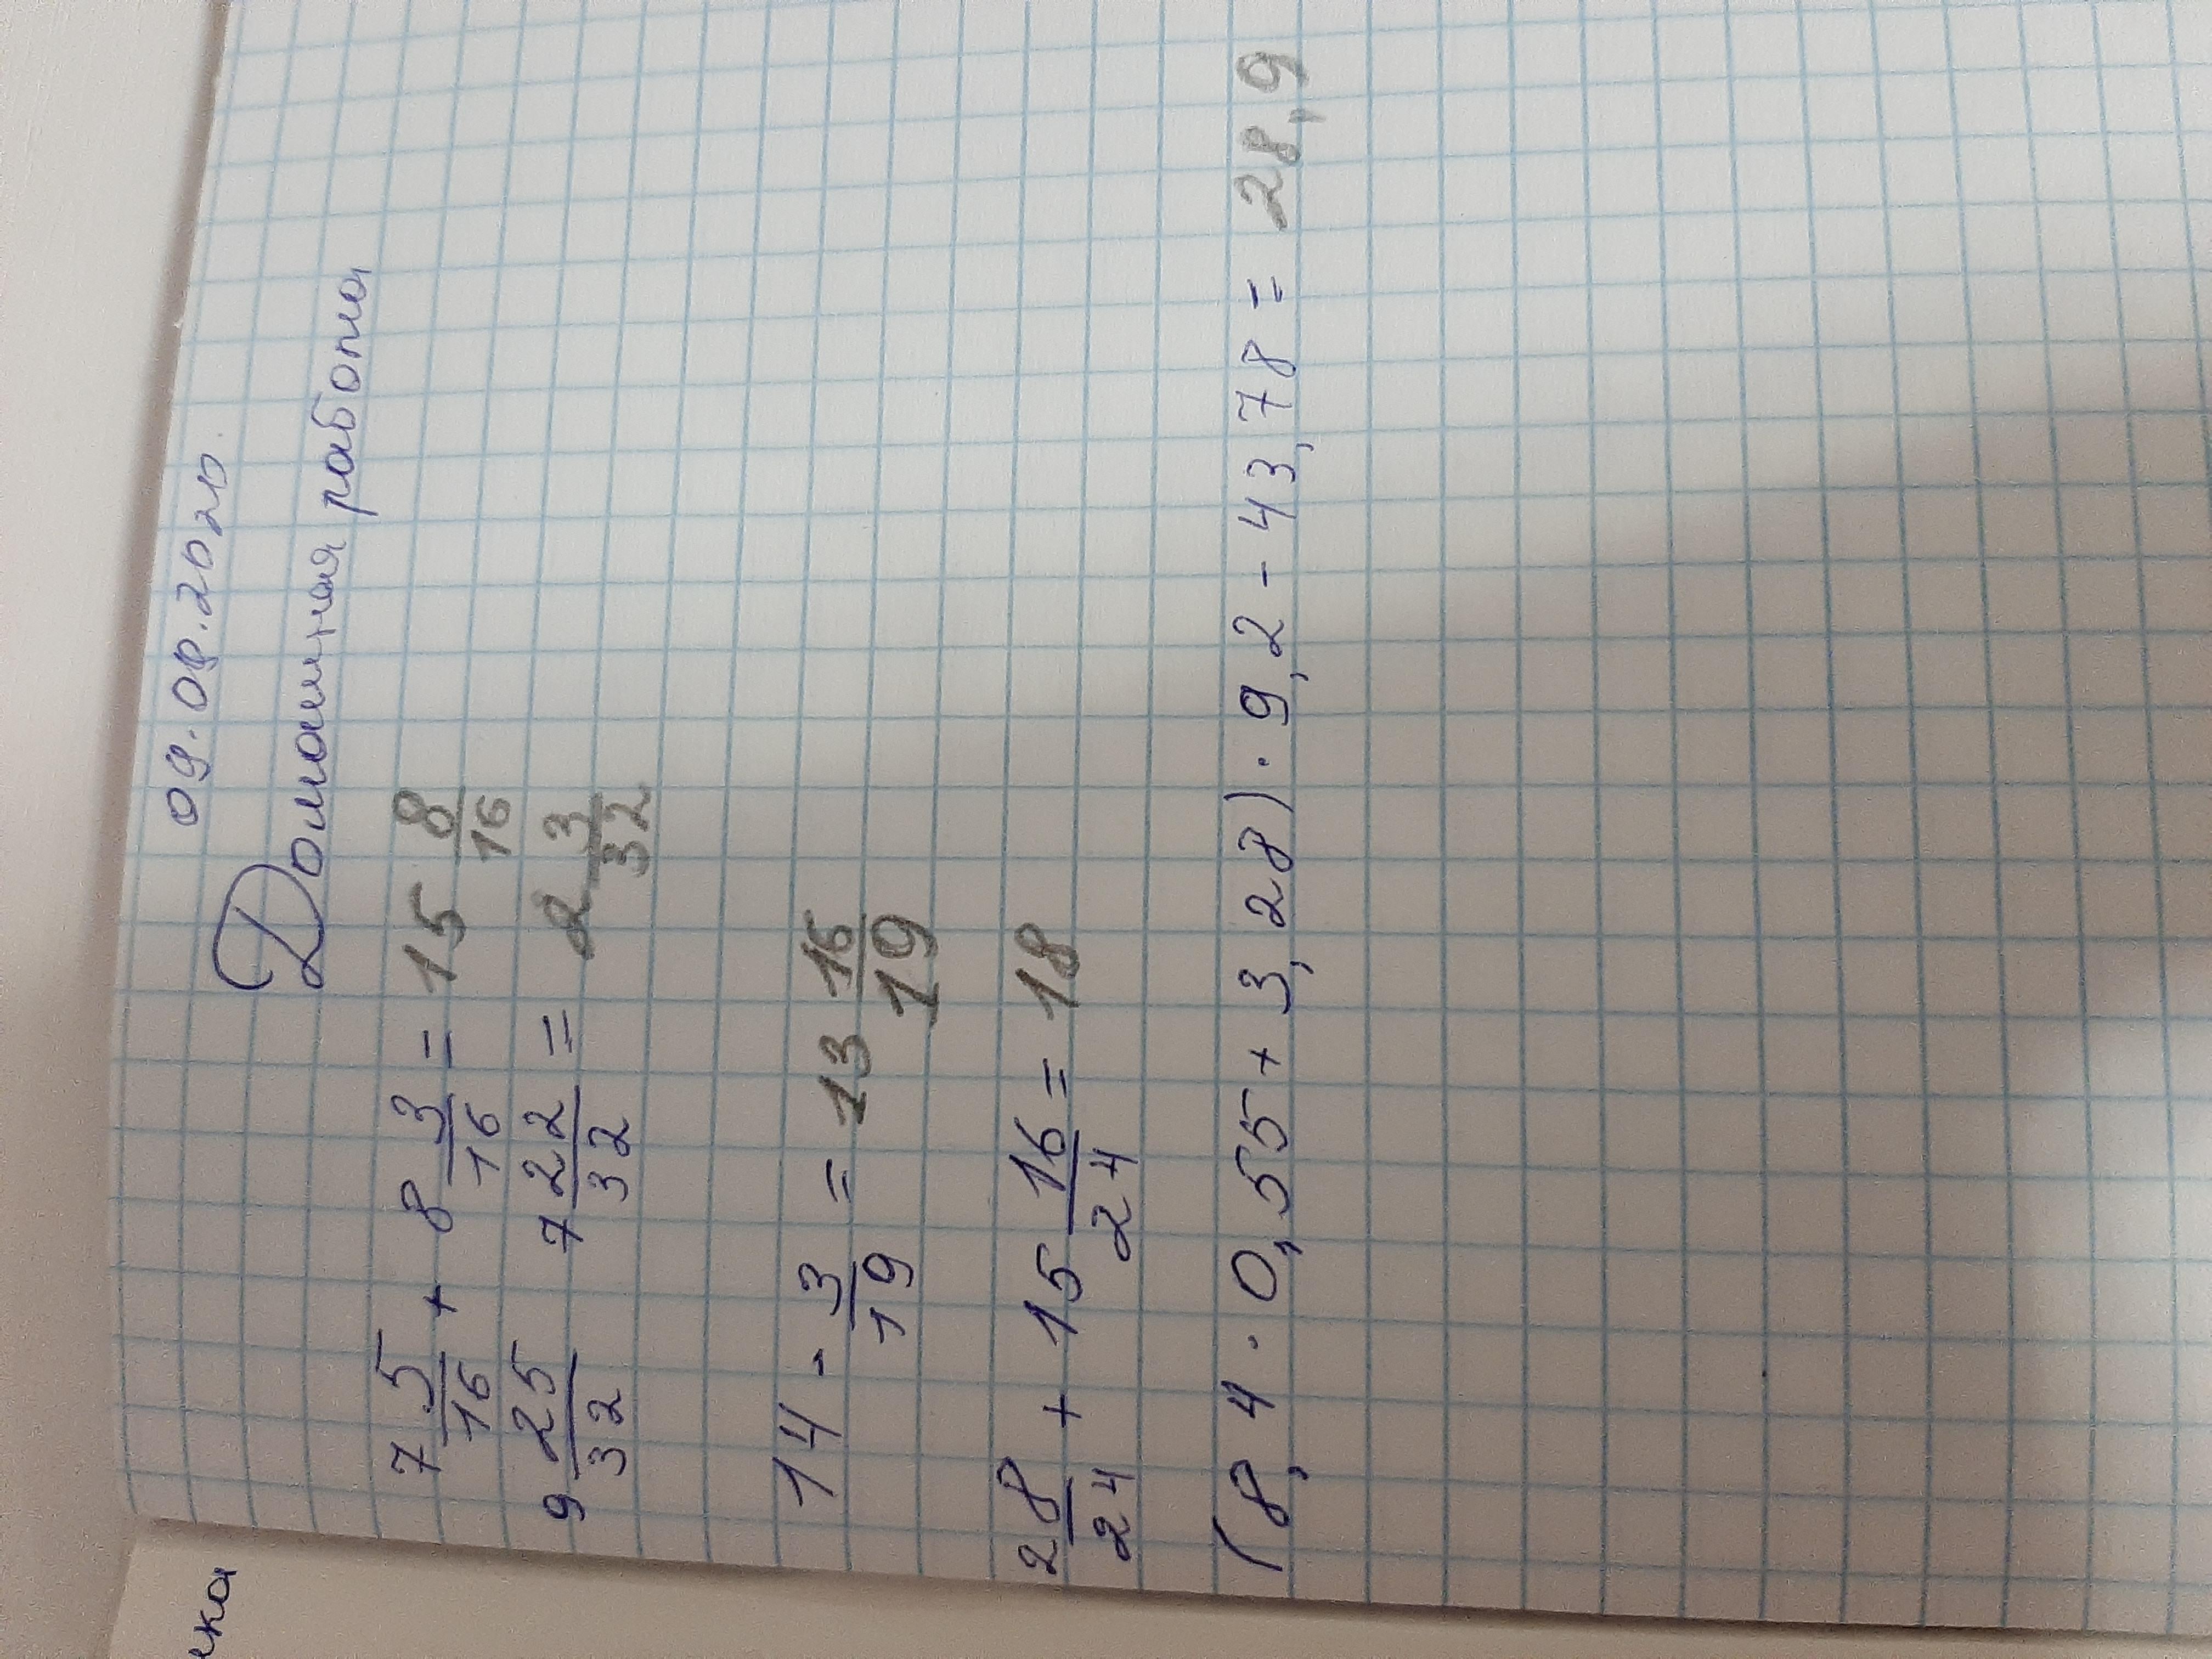 09.09.2020
Домашняя работа
7 5/16 + 8 3/16 = 15 8/16
9 25/32 7 22/32 = 2 3/32
14 - 3/19 = 13 16/19
2 8/24 + 15 16/24 = 18
(8,4 · 0,55 + 3,28) · 9,2 - 43,78 = 28,9